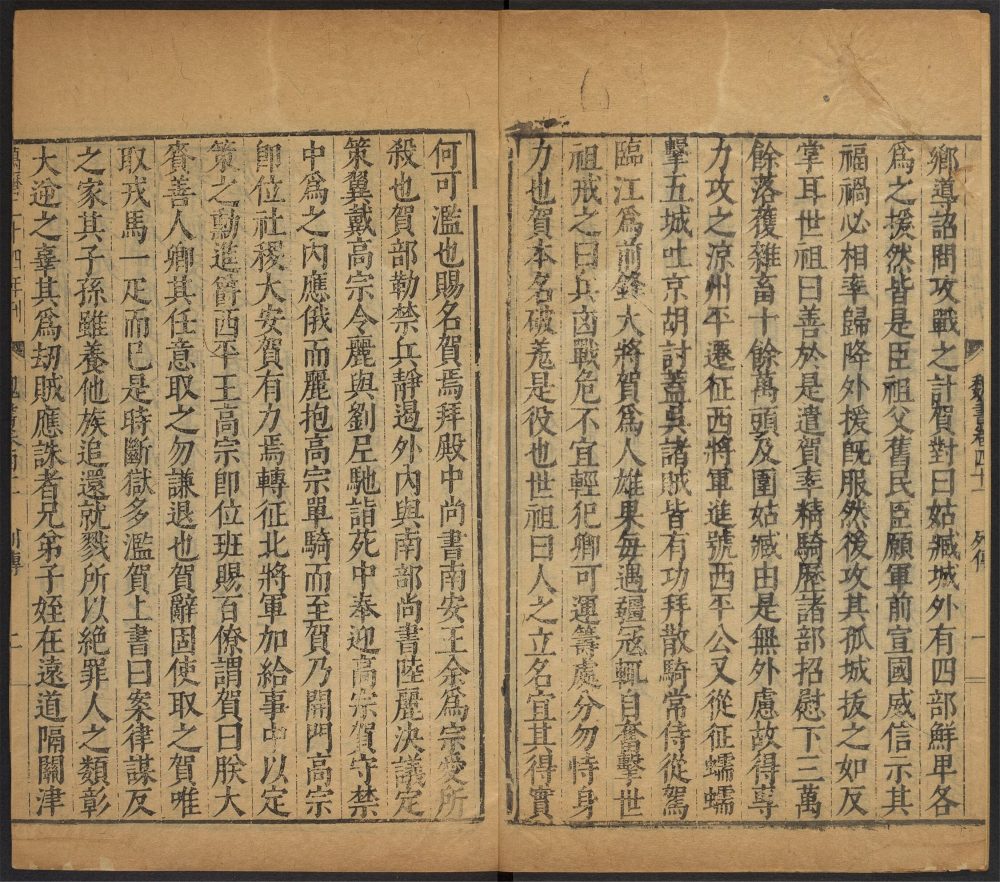 魏書卷四十一 列傳 一
鄉導詔問攻戰之計賀對曰姑臧城外有四部鮮卑各
爲之援然皆是臣祖父舊民臣願軍前宣國威信示其
福禍必相率歸降外援旣服然後攻其孤城拔之如反
掌耳世祖曰善於是遣賀率精騎歷諸部招慰下三萬
餘落獲雜畜十餘萬頭及圍姑臧由是無外慮故得專
力攻之涼州平遷征西將軍進號西平公又從征蠕蠕
擊五城吐京胡討蓋吳諸賊皆有功拜散騎常侍從駕
臨江爲前鋒大將賀爲人雄果每遇疆寇輒自奮擊世
祖戒之曰兵凶戰危不宜輕犯卿可運籌處分勿恃身
力也賀本名破羌是役也世祖曰人之立名宜其得實
何可濫也賜名賀焉拜殿中尚書南安王余爲宗愛所
殺也賀部勒禁兵靜遏外內與南部尚書陸麗決議定
策翼戴高宗令麗與劉尼馳詣苑中奉迎高宗賀守禁
中爲之內應俄而麗抱高宗單騎而至賀乃開門高宗
卽位社稷大安賀有力焉轉征北將軍加給事中以定
策之勳進爵西平王高宗卽位班賜百僚謂賀曰朕大
賚善人卿其任意取之勿謙退也賀辭固使取之賀唯
取戎馬一疋而已是時斷獄多濫賀上書曰案律謀反
之家其子孫雖養他族追還就戮所以絶罪人之類彰
大逆之辜其爲劫賊應誅者兄弟子姪在遠道隔關津
二十四年刊 列傳 二